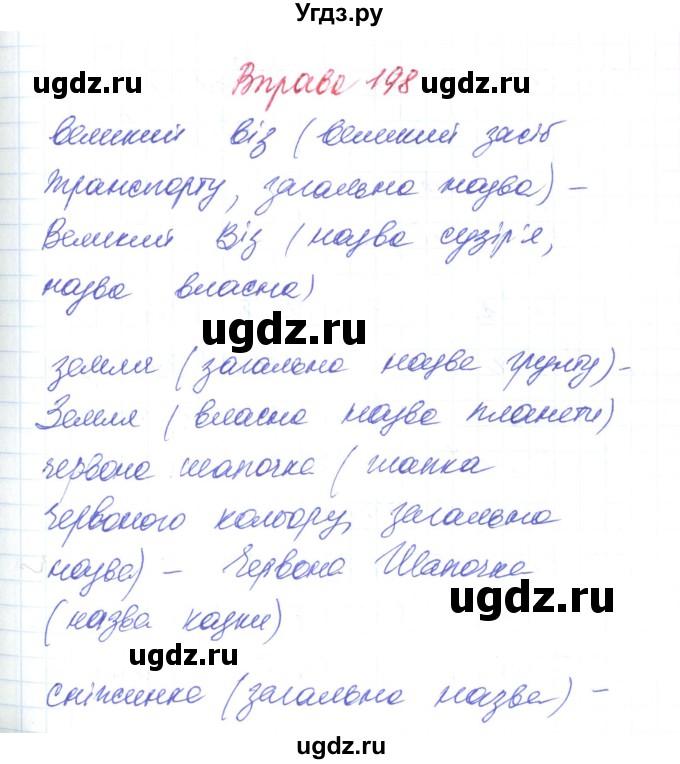 Угдз.ру
Вправа 198
ugdz.ru ugdz.ru
великий віз (великий засіб
транспорту, загальна назва) –
Великий Віз (назва сузір'я,
назва власна)
ugdz.ru
земля (загальна назва ґрунту) –
Земля (власна назва планети)
червона шапочка (шапка
червоного кольору, загальна
назва) – Червона Шапочка
ugdz.ru
(назва казки)
ugdz.ru
сніжинка (загальна назва) –
ugdz.ru